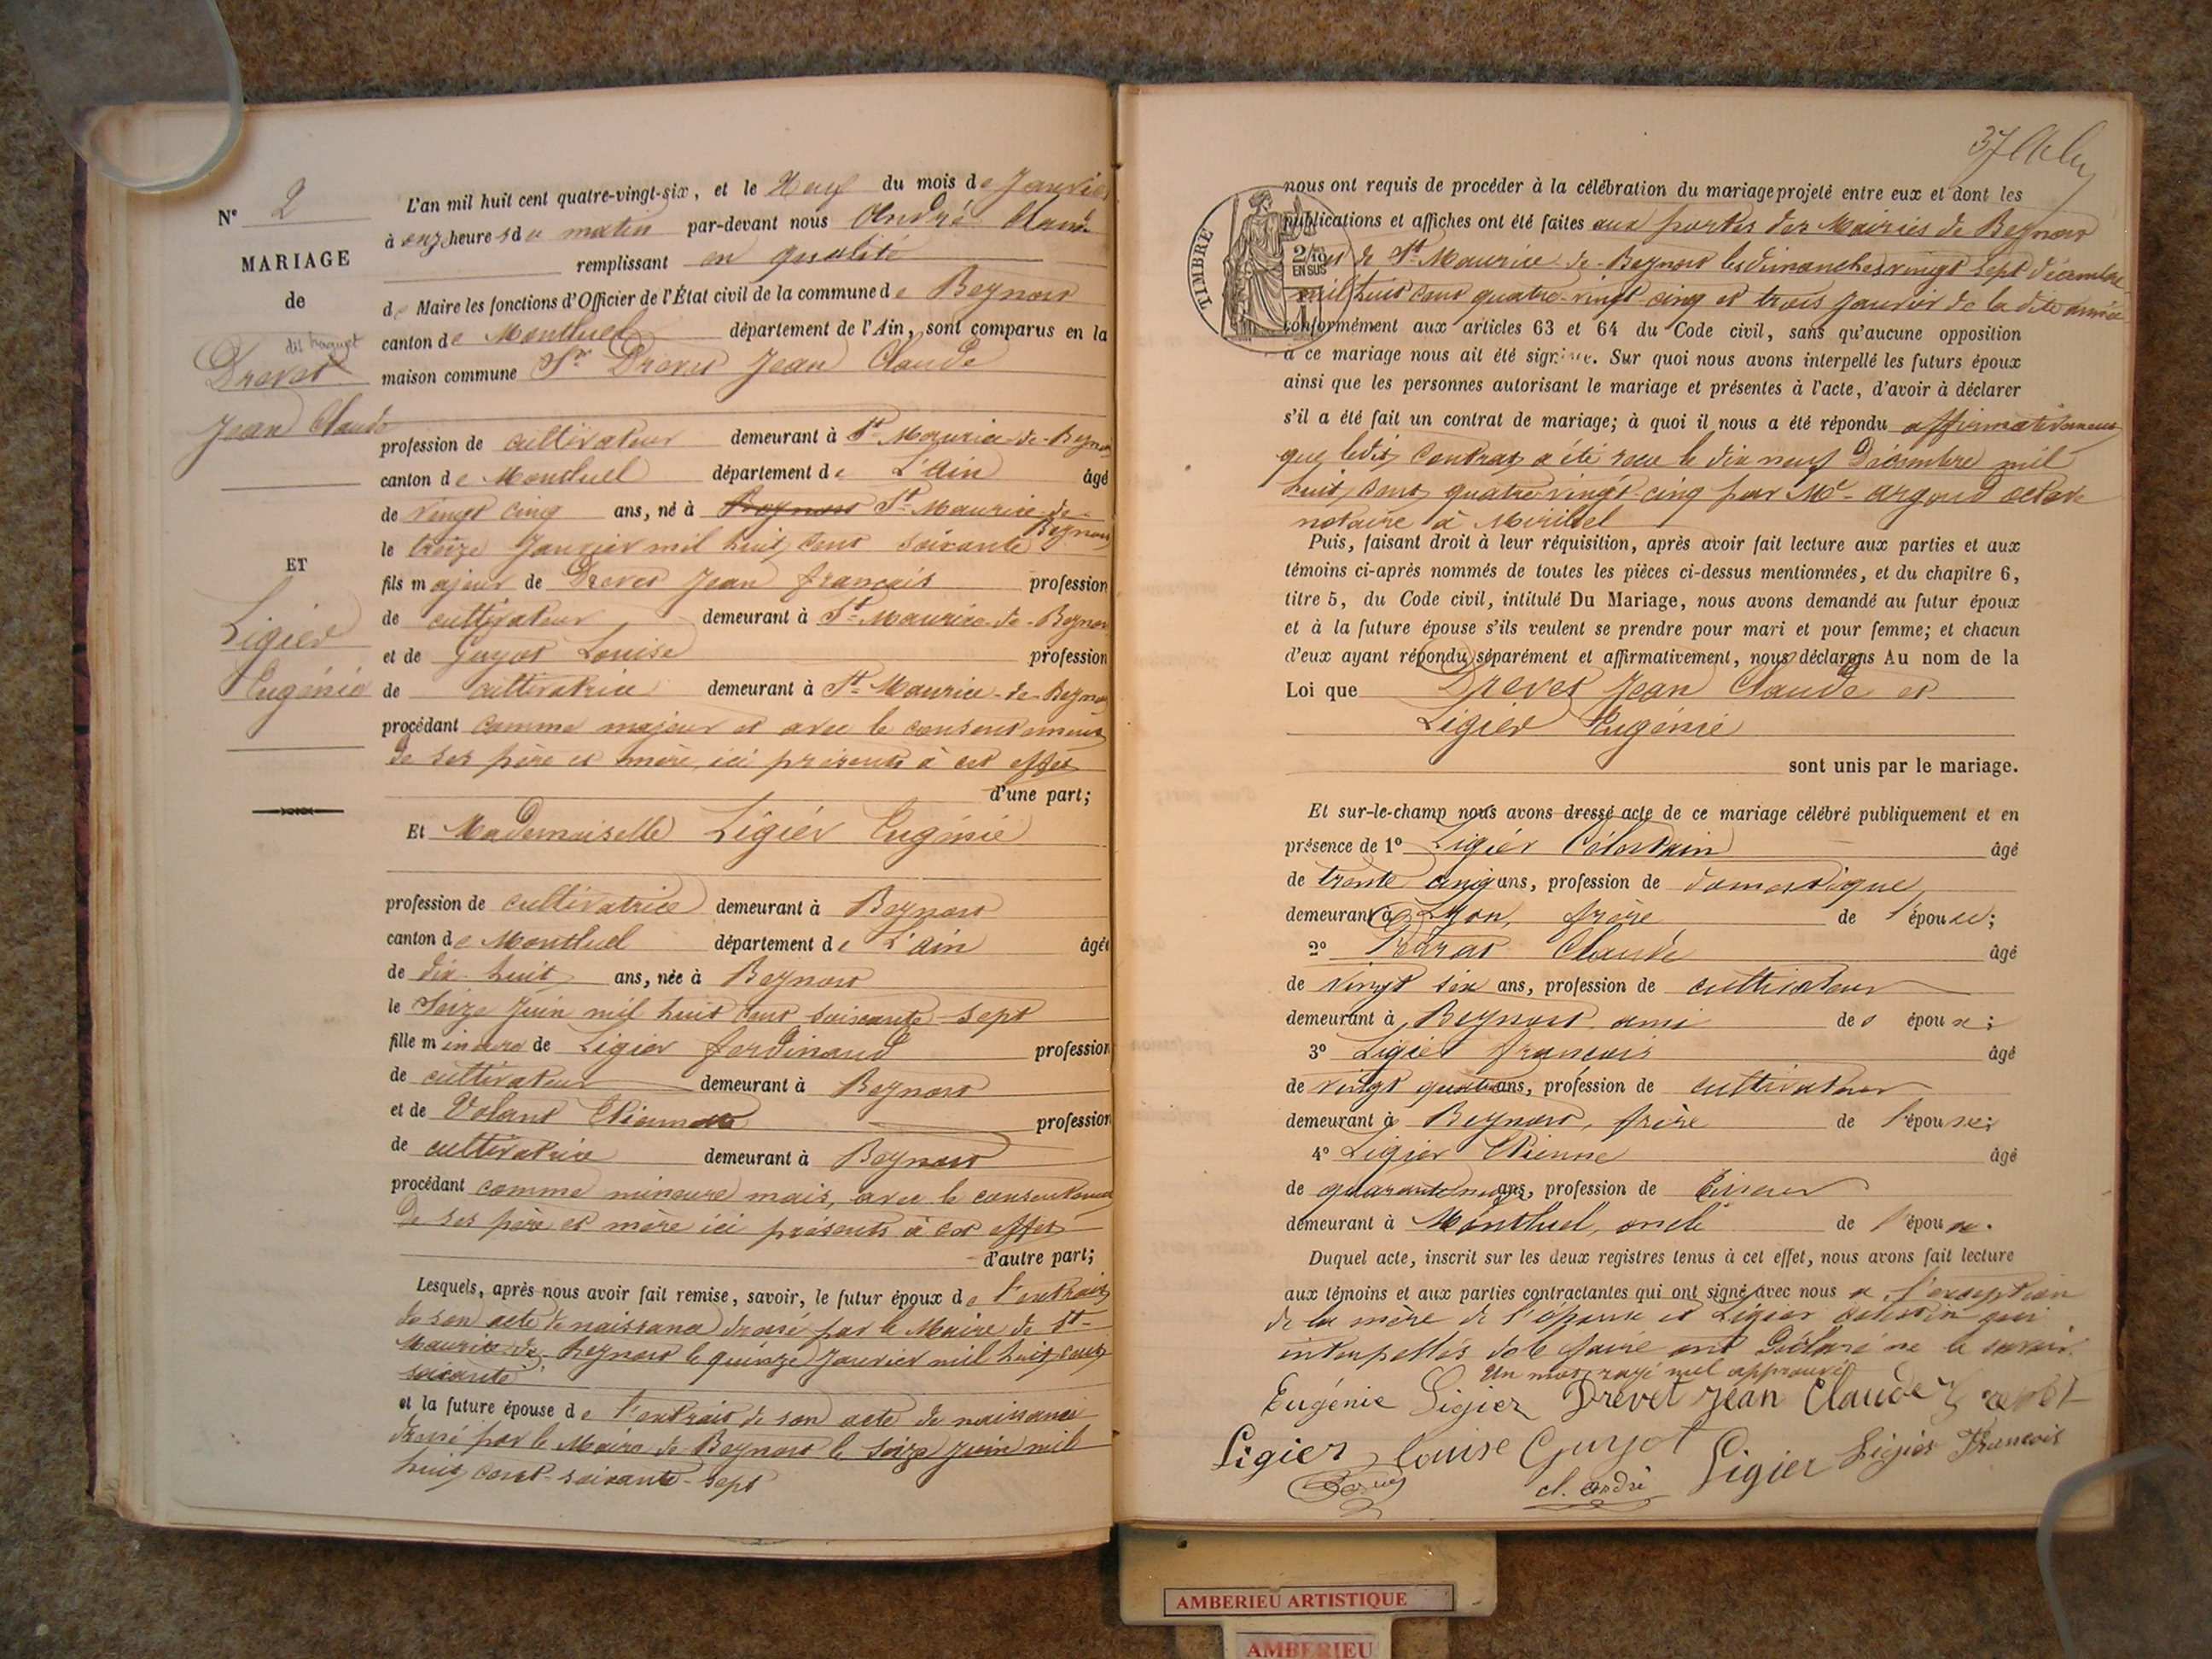 N° 2
MARIAGE
de
dit
Drevet
Jean Claude
ET
Ligier
Eugénie
L'an mil huit cent quatre-vingt-six, et le Neuf du mois de Janvier
à onze heures du matin par-devant nous André Claude
remplissant en qualité
de Maire les fonctions d'Officier de l'État civil de la commune de Beynost
canton de Montluel département de l'Ain, sont comparus en la
maison commune Sr Drevet Jean Claude
profession de cultivateur demeurant à St Maurice-de-Beynost
canton de Montluel département de L'ain âgé
de vingt cinq ans, né à Beynost St Maurice-de-
Beynost
le treize Janvier mil huit cent soixante
fils majeur de Drevet Jean français profession
de cultivateur demeurant à St Maurice-de-Beynost
et de Guyot Louise profession
de cultivatrice demeurant à St Maurice-de-Beynost
procédant comme majeur et avec le consentement
de ses père et mère ici présents à cet effet
d'une part;
Et Mademoiselle Ligier Eugénie
profession de cultivatrice demeurant à Beynost
canton de Montluel département de L'ain âgée
de dix-huit ans, née à Beynost
le Seize Juin mil huit cent soixante-sept
fille mineure de Ligier ferdinand profession
de cultivateur demeurant à Beynost
et de Volant Etiennette profession
de cultivatrice demeurant à Beynost
procédant comme mineure mais, avec le consentement
de ses père et mère ici présents à cet effet
d'autre part;
Lesquels, après nous avoir fait remise, savoir, le futur époux de l'extrait
de son acte de naissance dressé par le Maire de St-
Maurice-de-Beynost le quinze Janvier mil huit cent
soixante
et la future épouse de l'extrait de son acte de naissance
dressé par le Maire de Beynost le Seize Juin mil
huit cent-soixante-sept
37
TIMBRE
2/10
EN SUS
nous ont requis de procéder à la célébration du mariage projeté entre eux et dont les
publications et affiches ont été faites aux portes des Mairies de Beynost
et de St Maurice-de-Beynost les dimanches vingt sept décembre
mil huit cent quatre-vingt-cinq et trois Janvier de la dite année
conformément aux articles 63 et 64 du Code civil, sans qu'aucune opposition
à ce mariage nous ait été signifiée. Sur quoi nous avons interpellé les futurs époux
ainsi que les personnes autorisant le mariage et présentes à l'acte, d'avoir à déclarer
s'il a été fait un contrat de mariage; à quoi il nous a été répondu affirmativement
que ledit Contrat a été reçu le dix neuf Décembre mil
huit cent quatre vingt-cinq par Me argoud octave
notaire à Miribel
Puis, faisant droit à leur réquisition, après avoir fait lecture aux parties et aux
témoins ci-après nommés de toutes les pièces ci-dessus mentionnées, et du chapitre 6,
titre 5, du Code civil, intitulé Du Mariage, nous avons demandé au futur époux
et à la future épouse s'ils veulent se prendre pour mari et pour femme; et chacun
d'eux ayant répondu séparément et affirmativement, nous déclarons Au nom de la
Loi que Drevet Jean Claude et
Ligier Eugénie
sont unis par le mariage.
Et sur-le-champ nous avons dressé acte de ce mariage célébré publiquement et en
présence de 1° Ligier Célestin âgé
de trente cinq ans, profession de domestique
demeurant à Lyon, frère de l'épouse;
2° Claude âgé
de vingt six ans, profession de cultivateur
demeurant à Beynost ami des époux;
3° Ligier francois âgé
de vingt quatre ans, profession de cultivateur
demeurant à Beynost, frère de l'épouse;
4° Ligier Etienne âgé
de quarante ans, profession de
demeurant à Montluel, oncle de l'époux.
Duquel acte, inscrit sur les deux registres tenus à cet effet, nous avons fait lecture
aux témoins et aux parties contractantes qui ont signé avec nous à l'exception
de la mère de l'épouse et Ligier celestin qui
interpellés de le faire ont Déclaré ne le savoir.
Un mot rayé nul approuvé
Eugénie Ligier Drevet Jean Claude Drevet
Ligier Louise Guyot Ligier Ligier Francois
cl. andré
AMBERIEU ARTISTIQUE
AMBERIEU